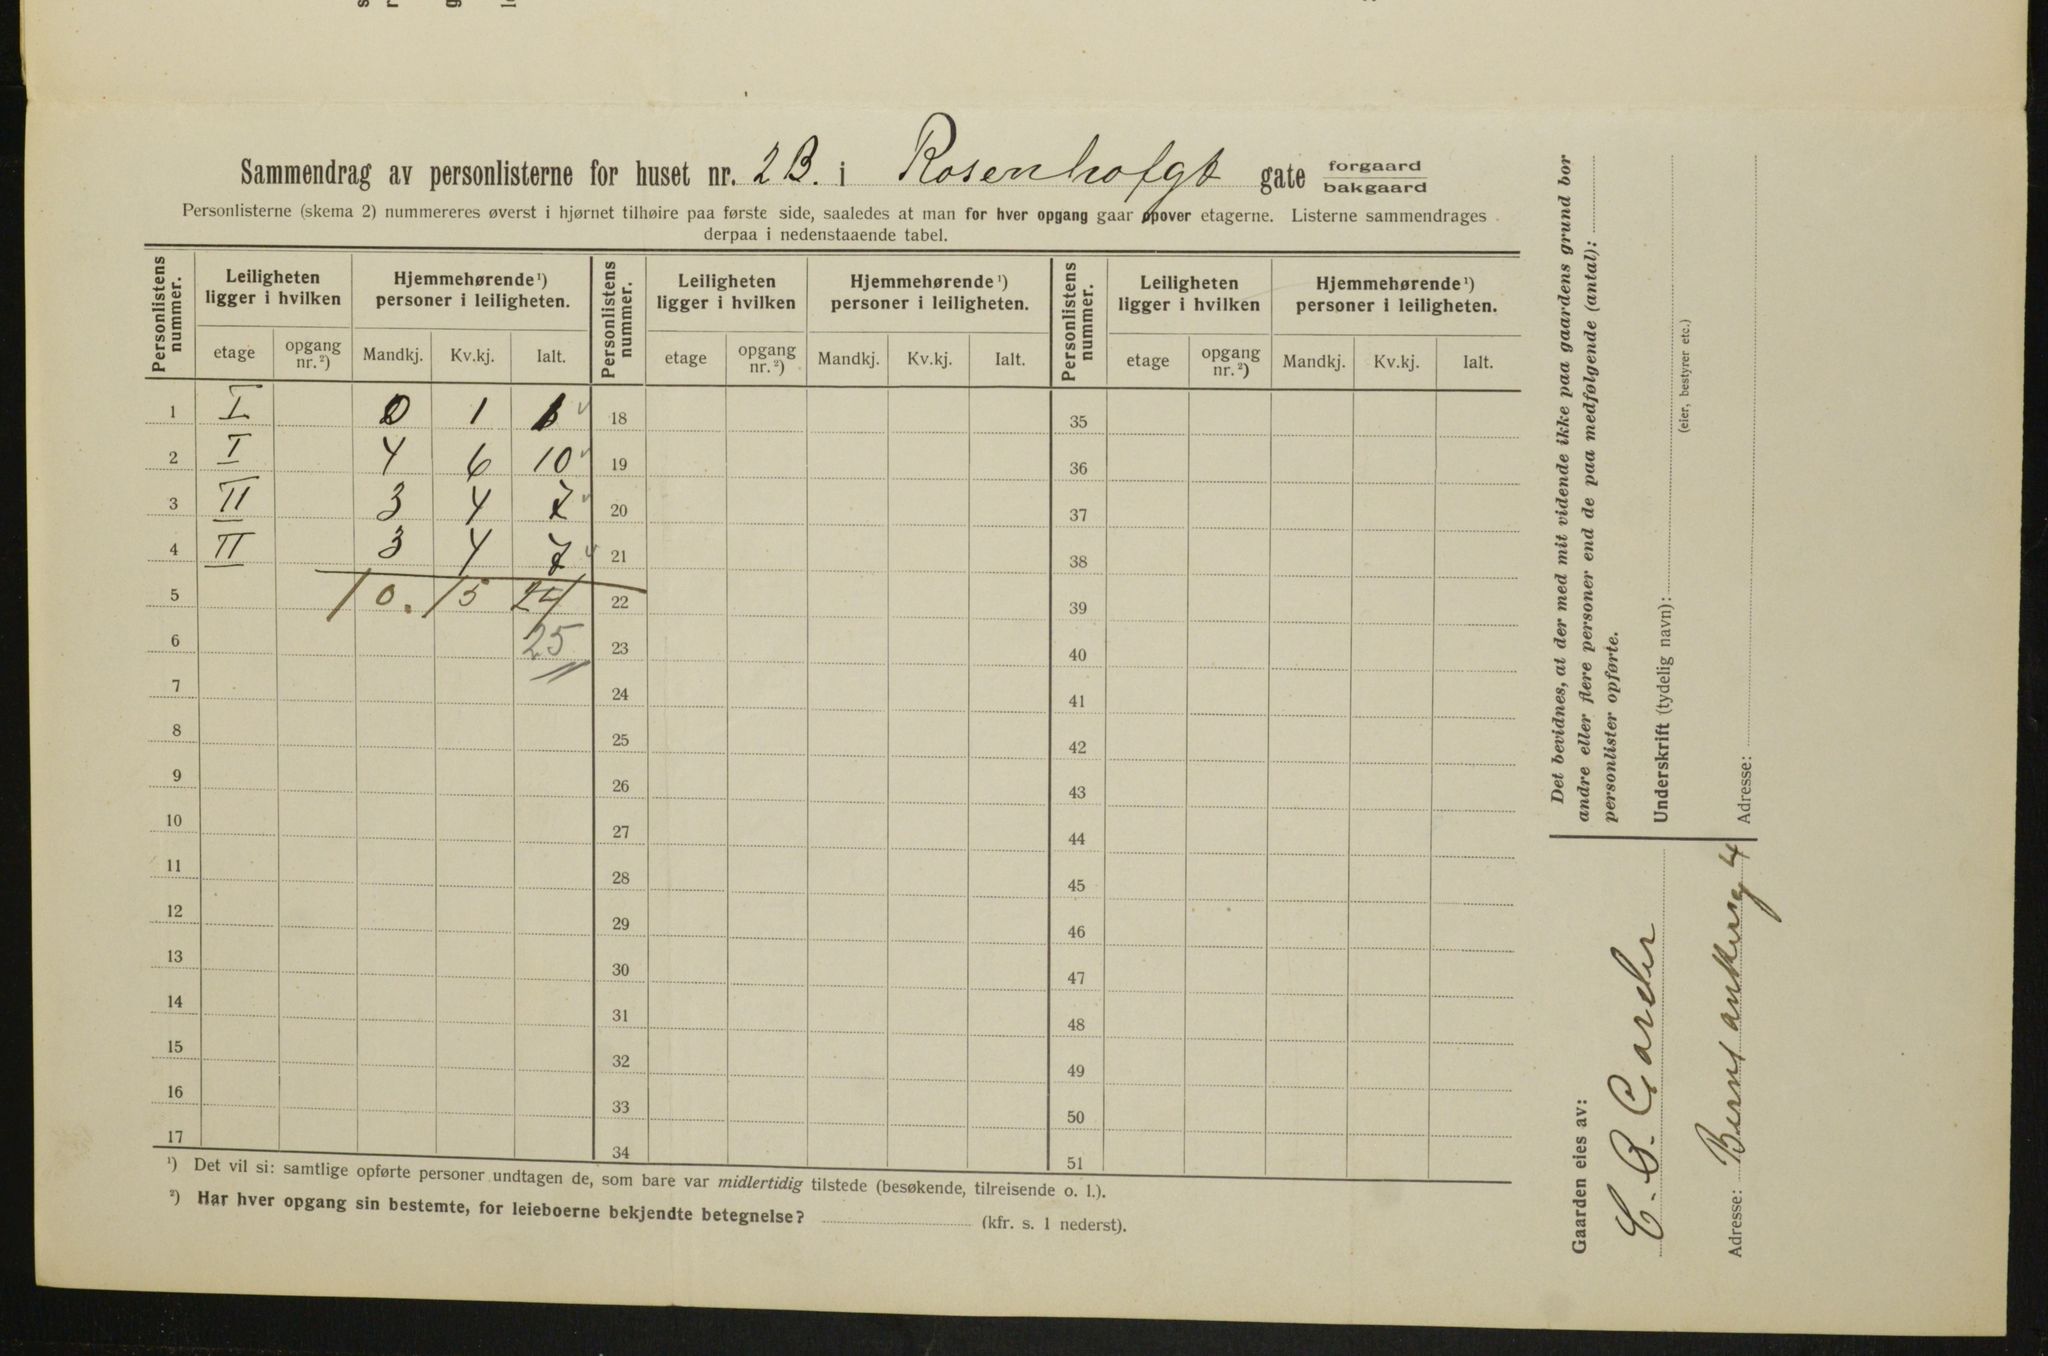 Sammendrag av personlisterne for huset nr. 2B. i Rosenhofgt gate forgaard bakgaard
Personlisterne (skema 2) nummereres øverst i hjørnet tilhøire paa første side, saaledes at man for hver opgang gaar opover etagerne. Listerne sammendrages
derpaa i nedenstaaende tabel.
Personlistens nummer. Leiligheten ligger i hvilken Hjemmehørende ¹) personer i leiligheten. Personlistens nummer. Leiligheten ligger i hvilken Hjemmehørende ¹) personer i leiligheten. Personlistens nummer. Leiligheten ligger i hvilken Hjemmehørende ¹) personer i leiligheten.
etage opgang nr. ²) Mandkj. Kv.kj. Ialt. etage opgang nr. ²) Mandkj. Kv.kj. Ialt. etage opgang nr. ²) Mandkj. Kv.kj. Ialt.
1 I 0 1 1 18 35
2 I 4 6 10 19 36
3 II 3 4 7 20 37
4 II 3 4 7 21 38
5 10. 15 24 22 39
6 25 23 40
7 24 41
8 25 42
9 26 43
10 27 44
11 28 45
12 29 46
13 30 47
14 31 48
15 32 49
16 33 50
17 34 51
¹) Det vil si: samtlige opførte personer undtagen de, som bare var midlertidig tilstede (besøkende, tilreisende o. l.).
²) Har hver opgang sin bestemte, for leieboerne bekjendte betegnelse? (kfr. s. 1 nederst).
Det bevidnes, at der med mit vidende ikke paa gaardens grund bor
andre eller flere personer end de paa medfølgende (antal):
personlister opførte.
Underskrift (tydelig navn):
(eier, bestyrer etc.)
Adresse:
Gaarden eies av:
C. B.
Adresse: 4